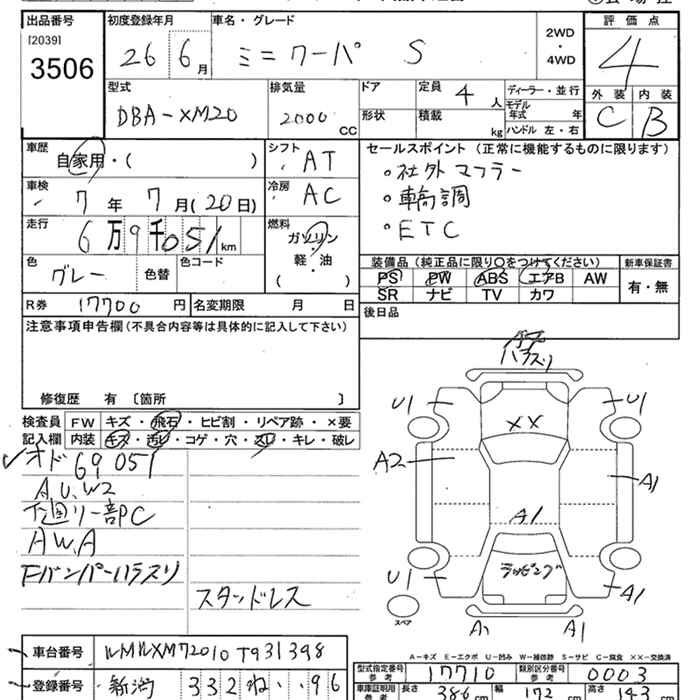 出品番号 初度登録年月 車名・グレード 評価点
[2039] 2WD
3506 26 6月 ミニクーパ S ・ 4
4WD
型式 排気量 ドア 定員 4人 ディーラー・並行 外装 内装
DBA-XM20 2000 CC 形状 積載 kg モデル年式 年 C B
ハンドル 左・右
車歴 自家用・( ) シフト AT セールスポイント (正常に機能するものに限ります)
。社外マフラー
車検 7年 7月(20日) 冷房 AC 。車高調
走行 6万9千051km 燃料 。ETC
ガソリン
軽・油
( )
色 グレー 色替 色コード 装備品(純正品に限り○をつけてください) 新車保証書
PS PW ABS エアB AW 有・無
SR ナビ TV カワ
R券 17700円 名変期限 月 日 後日品
注意事項申告欄(不具合内容等は具体的に記入して下さい)
修復歴 有 〔箇所 〕
検査員 FW キズ・飛石・ヒビ割・リペア跡・×要
記入欄 内装 キズ・汚レ・コゲ・穴・スレ・キレ・破レ
オド 69051
A,U,W2
下廻リ一部PC
AWA
Fバンパーハラスリ
スタッドレス
ハラスリ
U1 U1
XX
A2 A1
A1
ラッピング
U1 A1
スペア
A1 A1
A-キズ E-エクボ U-凹み W-補修跡 S-サビ C-腐食 ××-交換済
車台番号 WMWXM72010T931398
型式指定番号 参考 17710 類別区分番号 参考 0003
登録番号 新潟 332 ね ・・96
車庫証明用 参考 長さ 386cm 幅 172cm 高さ 143cm